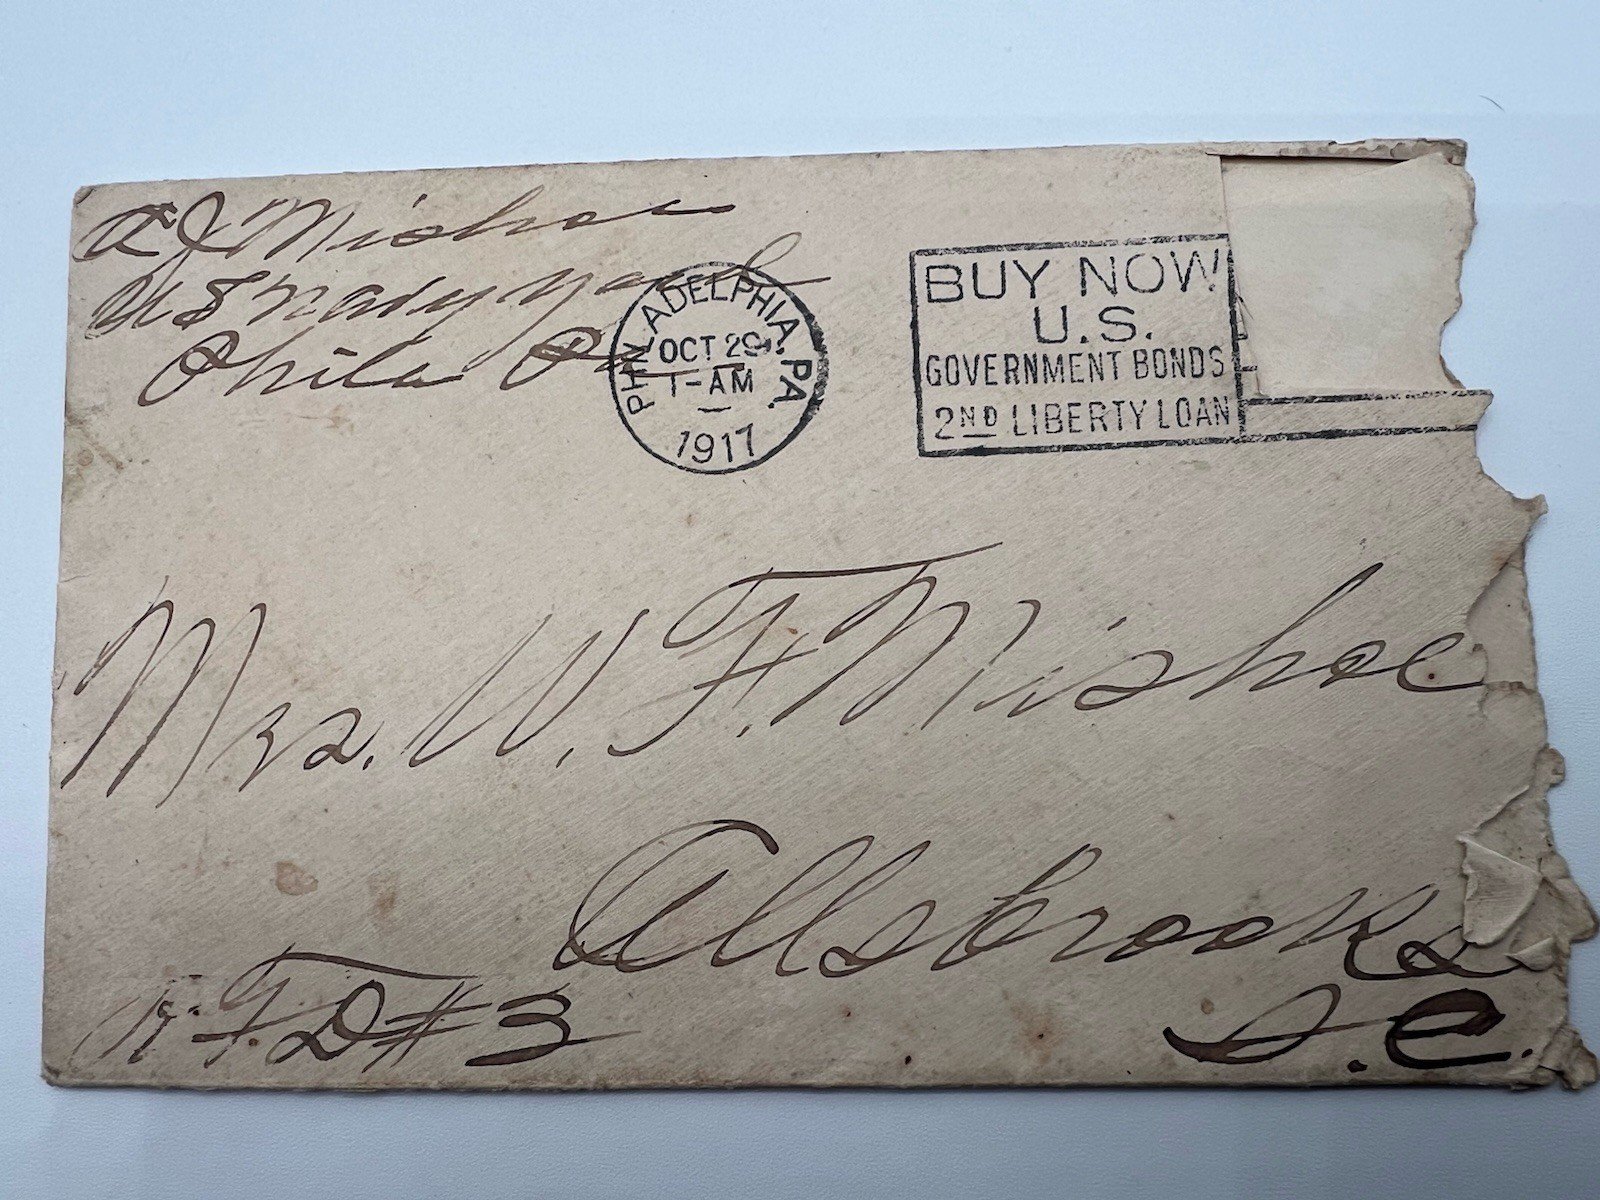 A J Mishoe
U S Navy Yard
Phila Pa
PHILADELPHIA, PA.
OCT 29
1-AM
1917
BUY NOW
U.S.
GOVERNMENT BONDS
2ND LIBERTY LOAN
Mrs. W. F. Mishoe
Allsbrooks
R. F D # 3
S. C.